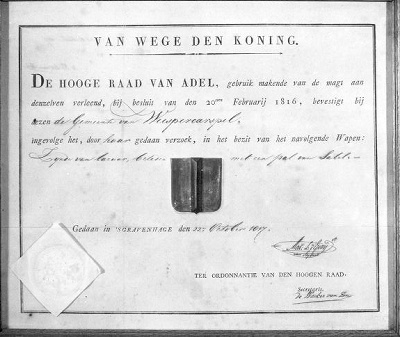 VAN WEGE DEN KONING.
DE HOOGE RAAD VAN ADEL, gebruik makende van de magt aan
denzelven verleend, bij besluit van den 20sten Februarij 1816, bevestigt bij
dezen de Gemeente van Weespercarspel,
ingevolge het, door haar gedaan verzoek, in het bezit van navolgende Wapen:
van lazuur, met een pal van Sabel.
Gedaan in 'SGRAVENHAGE den 22 October 1817.
TER ORDONNANTIE VAN DEN HOOGEN RAAD.
Secretaris